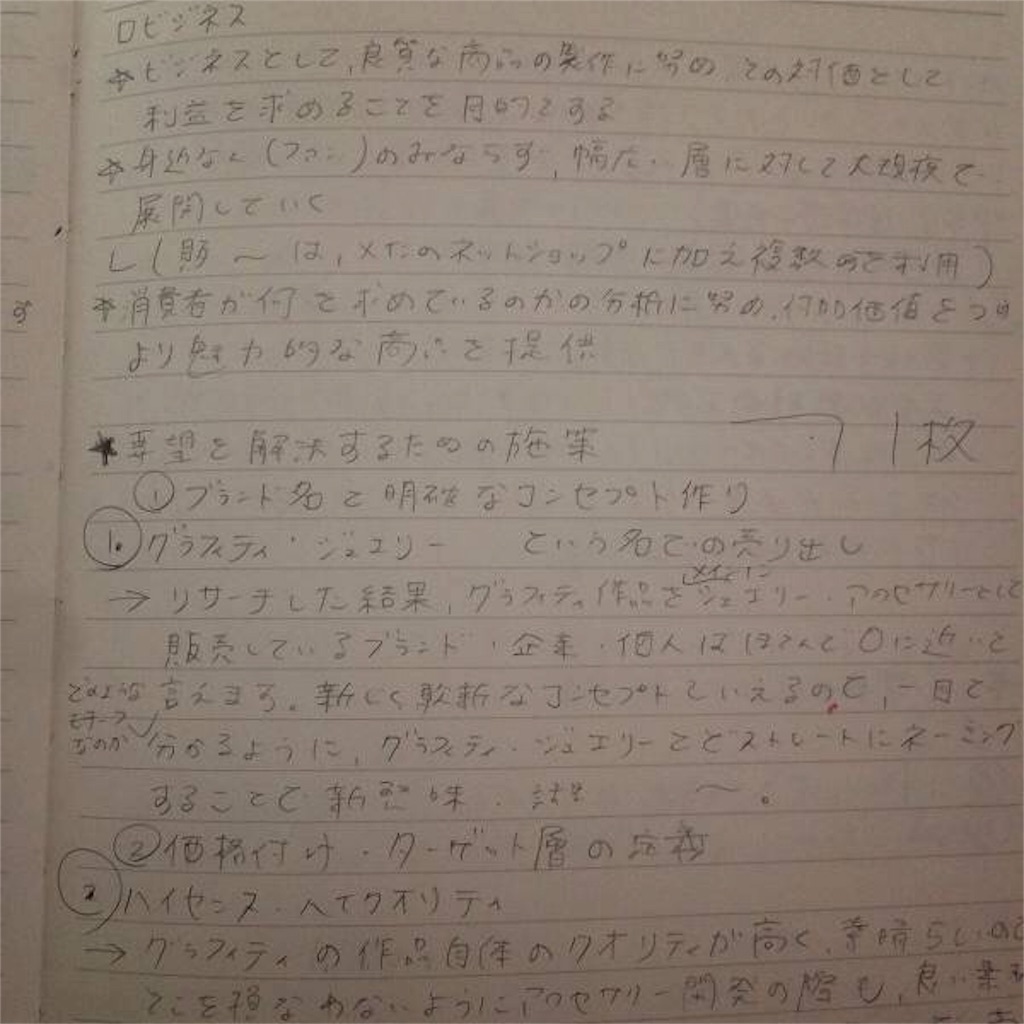 □ビジネス
☆ビジネスとして、良質な商品の製作に努め、その対価として
利益を求めることを目的とする
☆身近な人(ファン)のみならず、幅広い層に対して大規模で
展開していく
し(販〜は、メインのネットショップに加え複数のを利用)
す
☆消費者が何を求めているのかの分析に努め、付加価値をつけ
より魅力的な商品を提供
★要望を解決するための施策
1枚
①ブランド名と明確なコンセプト作り
1. グラフィティ・ジュエリー という名での売り出し
メインに
→リサーチした結果、グラフィティ作品をジュエリー・アクセサリーとして
販売しているブランド・企業・個人はほとんど0に近いと
どのような
言えます。新しく斬新なコンセプトといえるので、一目で
モチーフ
なのか
分かるように、グラフィティ・ジュエリーとどストレートにネーミング
することで新 味・話 〜。
②価格付け・ターゲット層の定義
2 ハイセンス・ハイクオリティ
→グラフィティの作品自体のクオリティが高く、素晴らしいので
そこを損なわないようにアクセサリー開発の際も、良い素